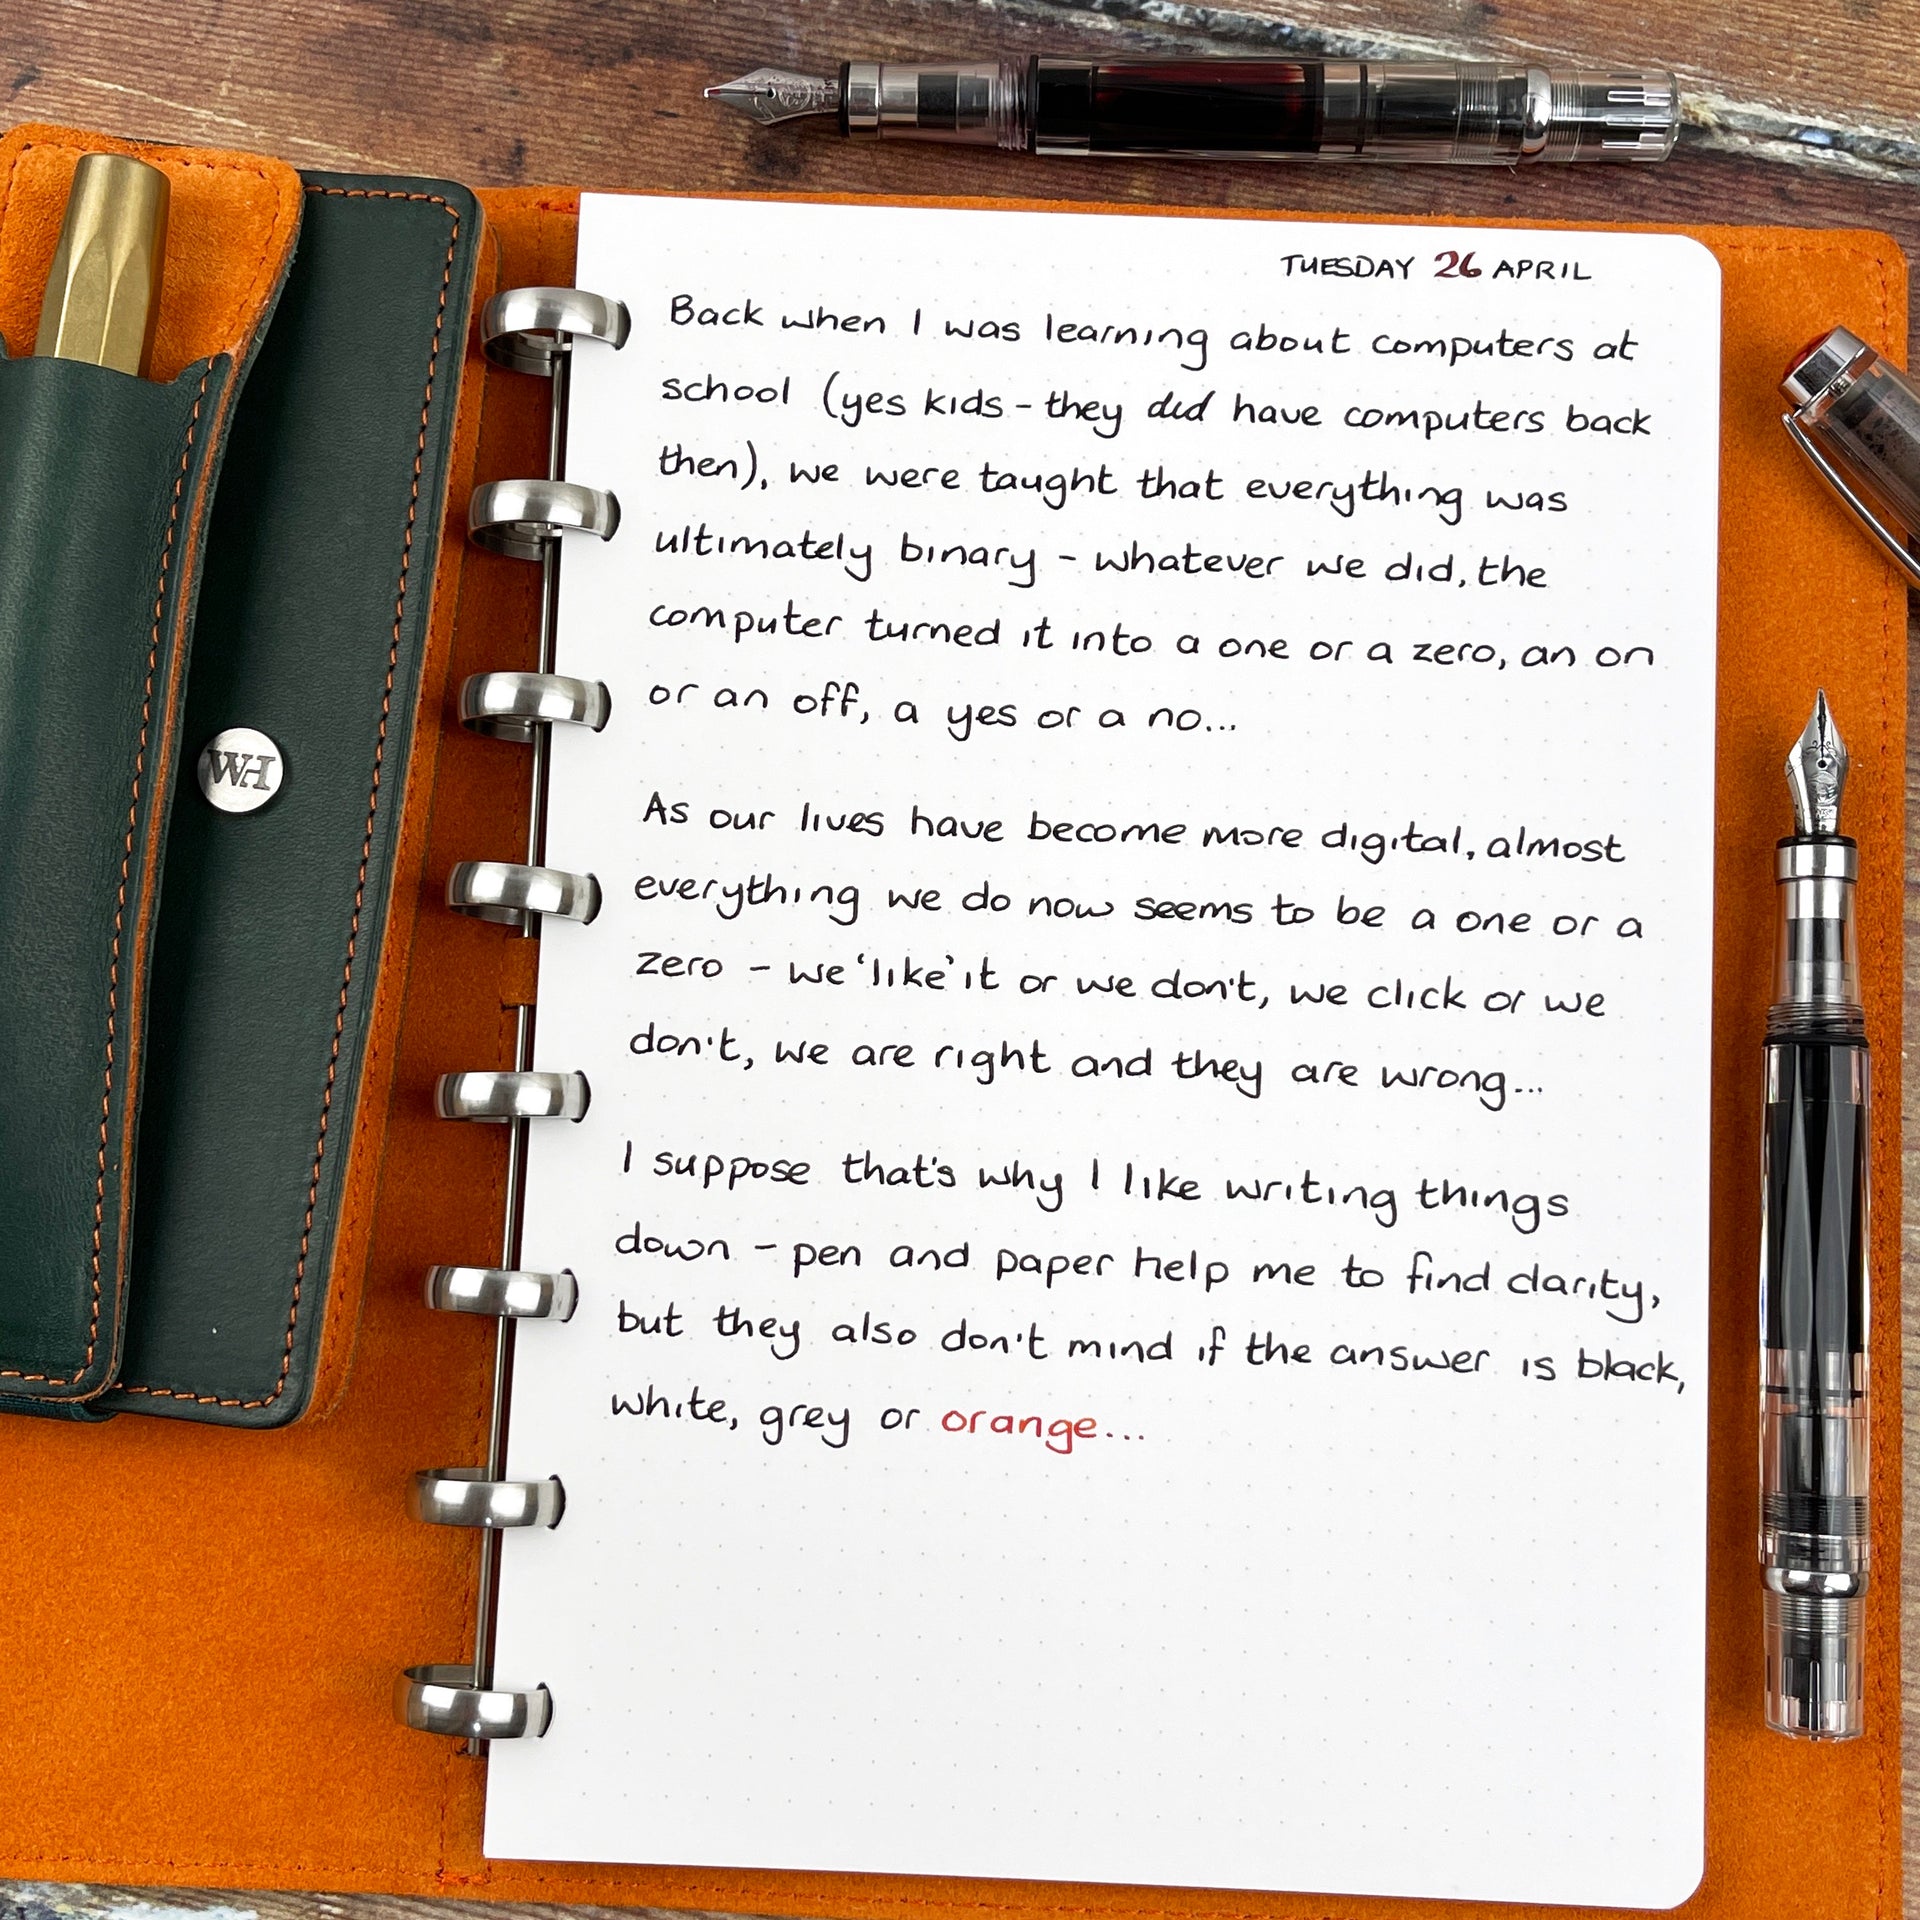 TUESDAY 26 APRIL
Back when I was learning about computers at
school (yes kids - they did have computers back
then), we were taught that everything was
ultimately binary - whatever we did, the
computer turned it into a one or a zero, an on
or an off, a yes or a no...
As our lives have become more digital, almost
everything we do now seems to be a one or a
zero - we 'like' it or we don't, we click or we
don't, we are right and they are wrong...
I suppose that's why I like writing things
down - pen and paper help me to find clarity,
but they also don't mind if the answer is black,
white, grey or orange...
WH